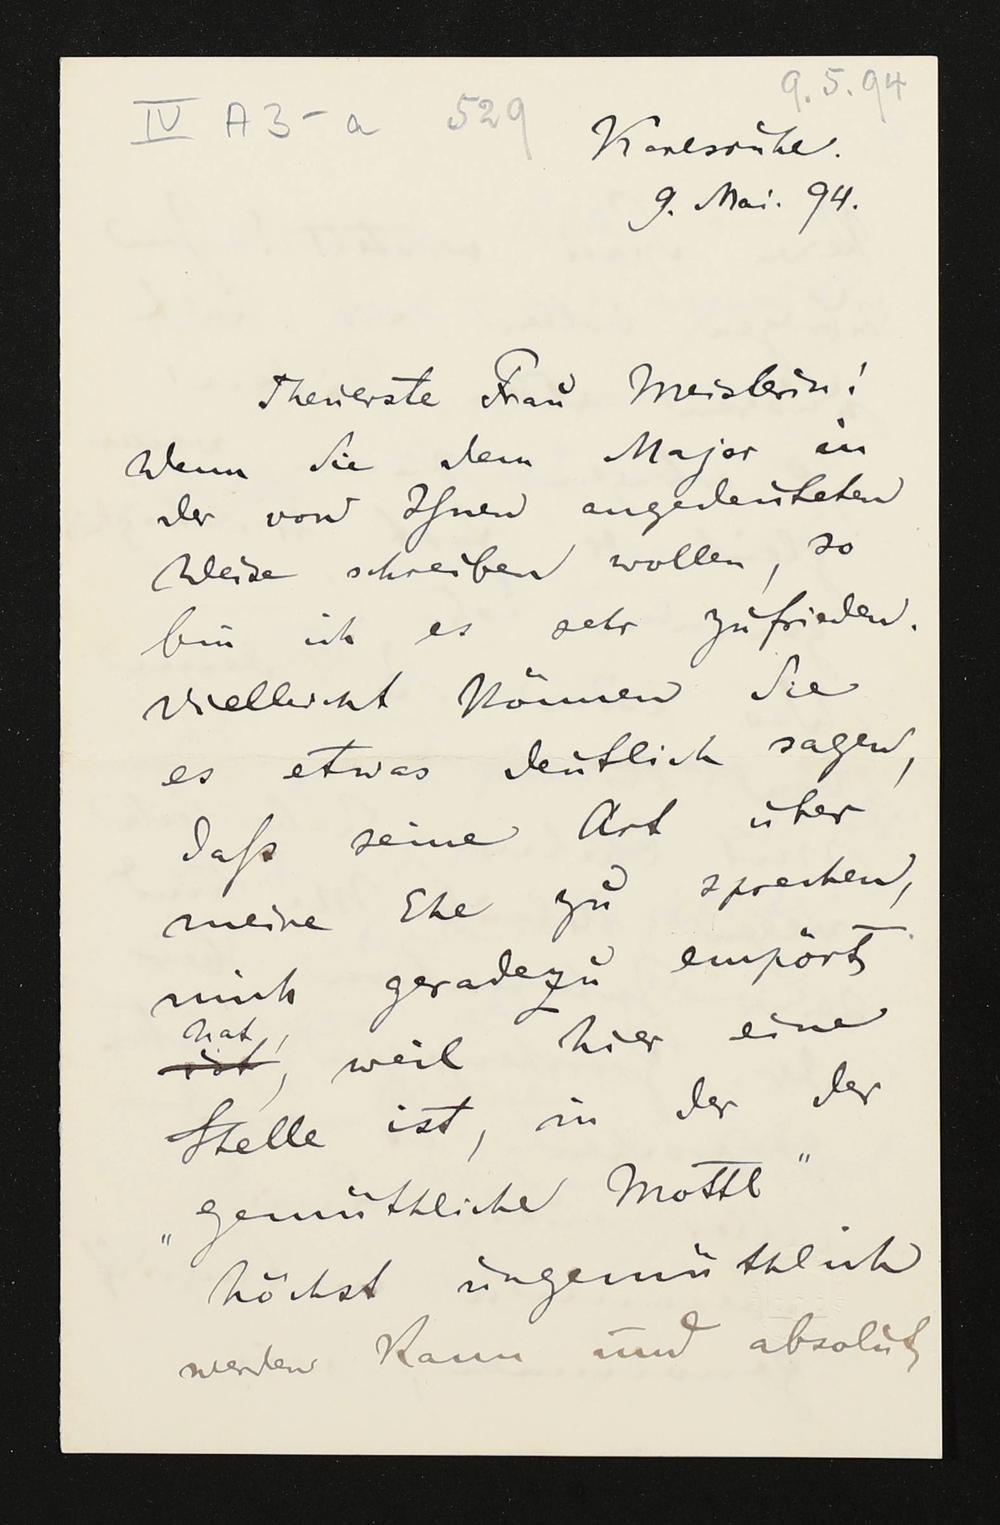 9. 5. 94
IV A 3 - a 529
Karlsruhe.
9. Mai. 94.
Theuerste Frau Meisterin!
Wenn Sie dem Major in
der von Ihnen angedeuteten
Weise schreiben wollen, so
bin ich es sehr zufrieden.
Vielleicht können Sie
es etwas deutlich sagen,
daß seine Art über
meine Ehe zu sprechen,
mich geradezu empört
hat,
ist, weil hier eine
Stelle ist, in der der
„gemüthliche Mottl"
höchst ungemüthlich
werden kann und absolut